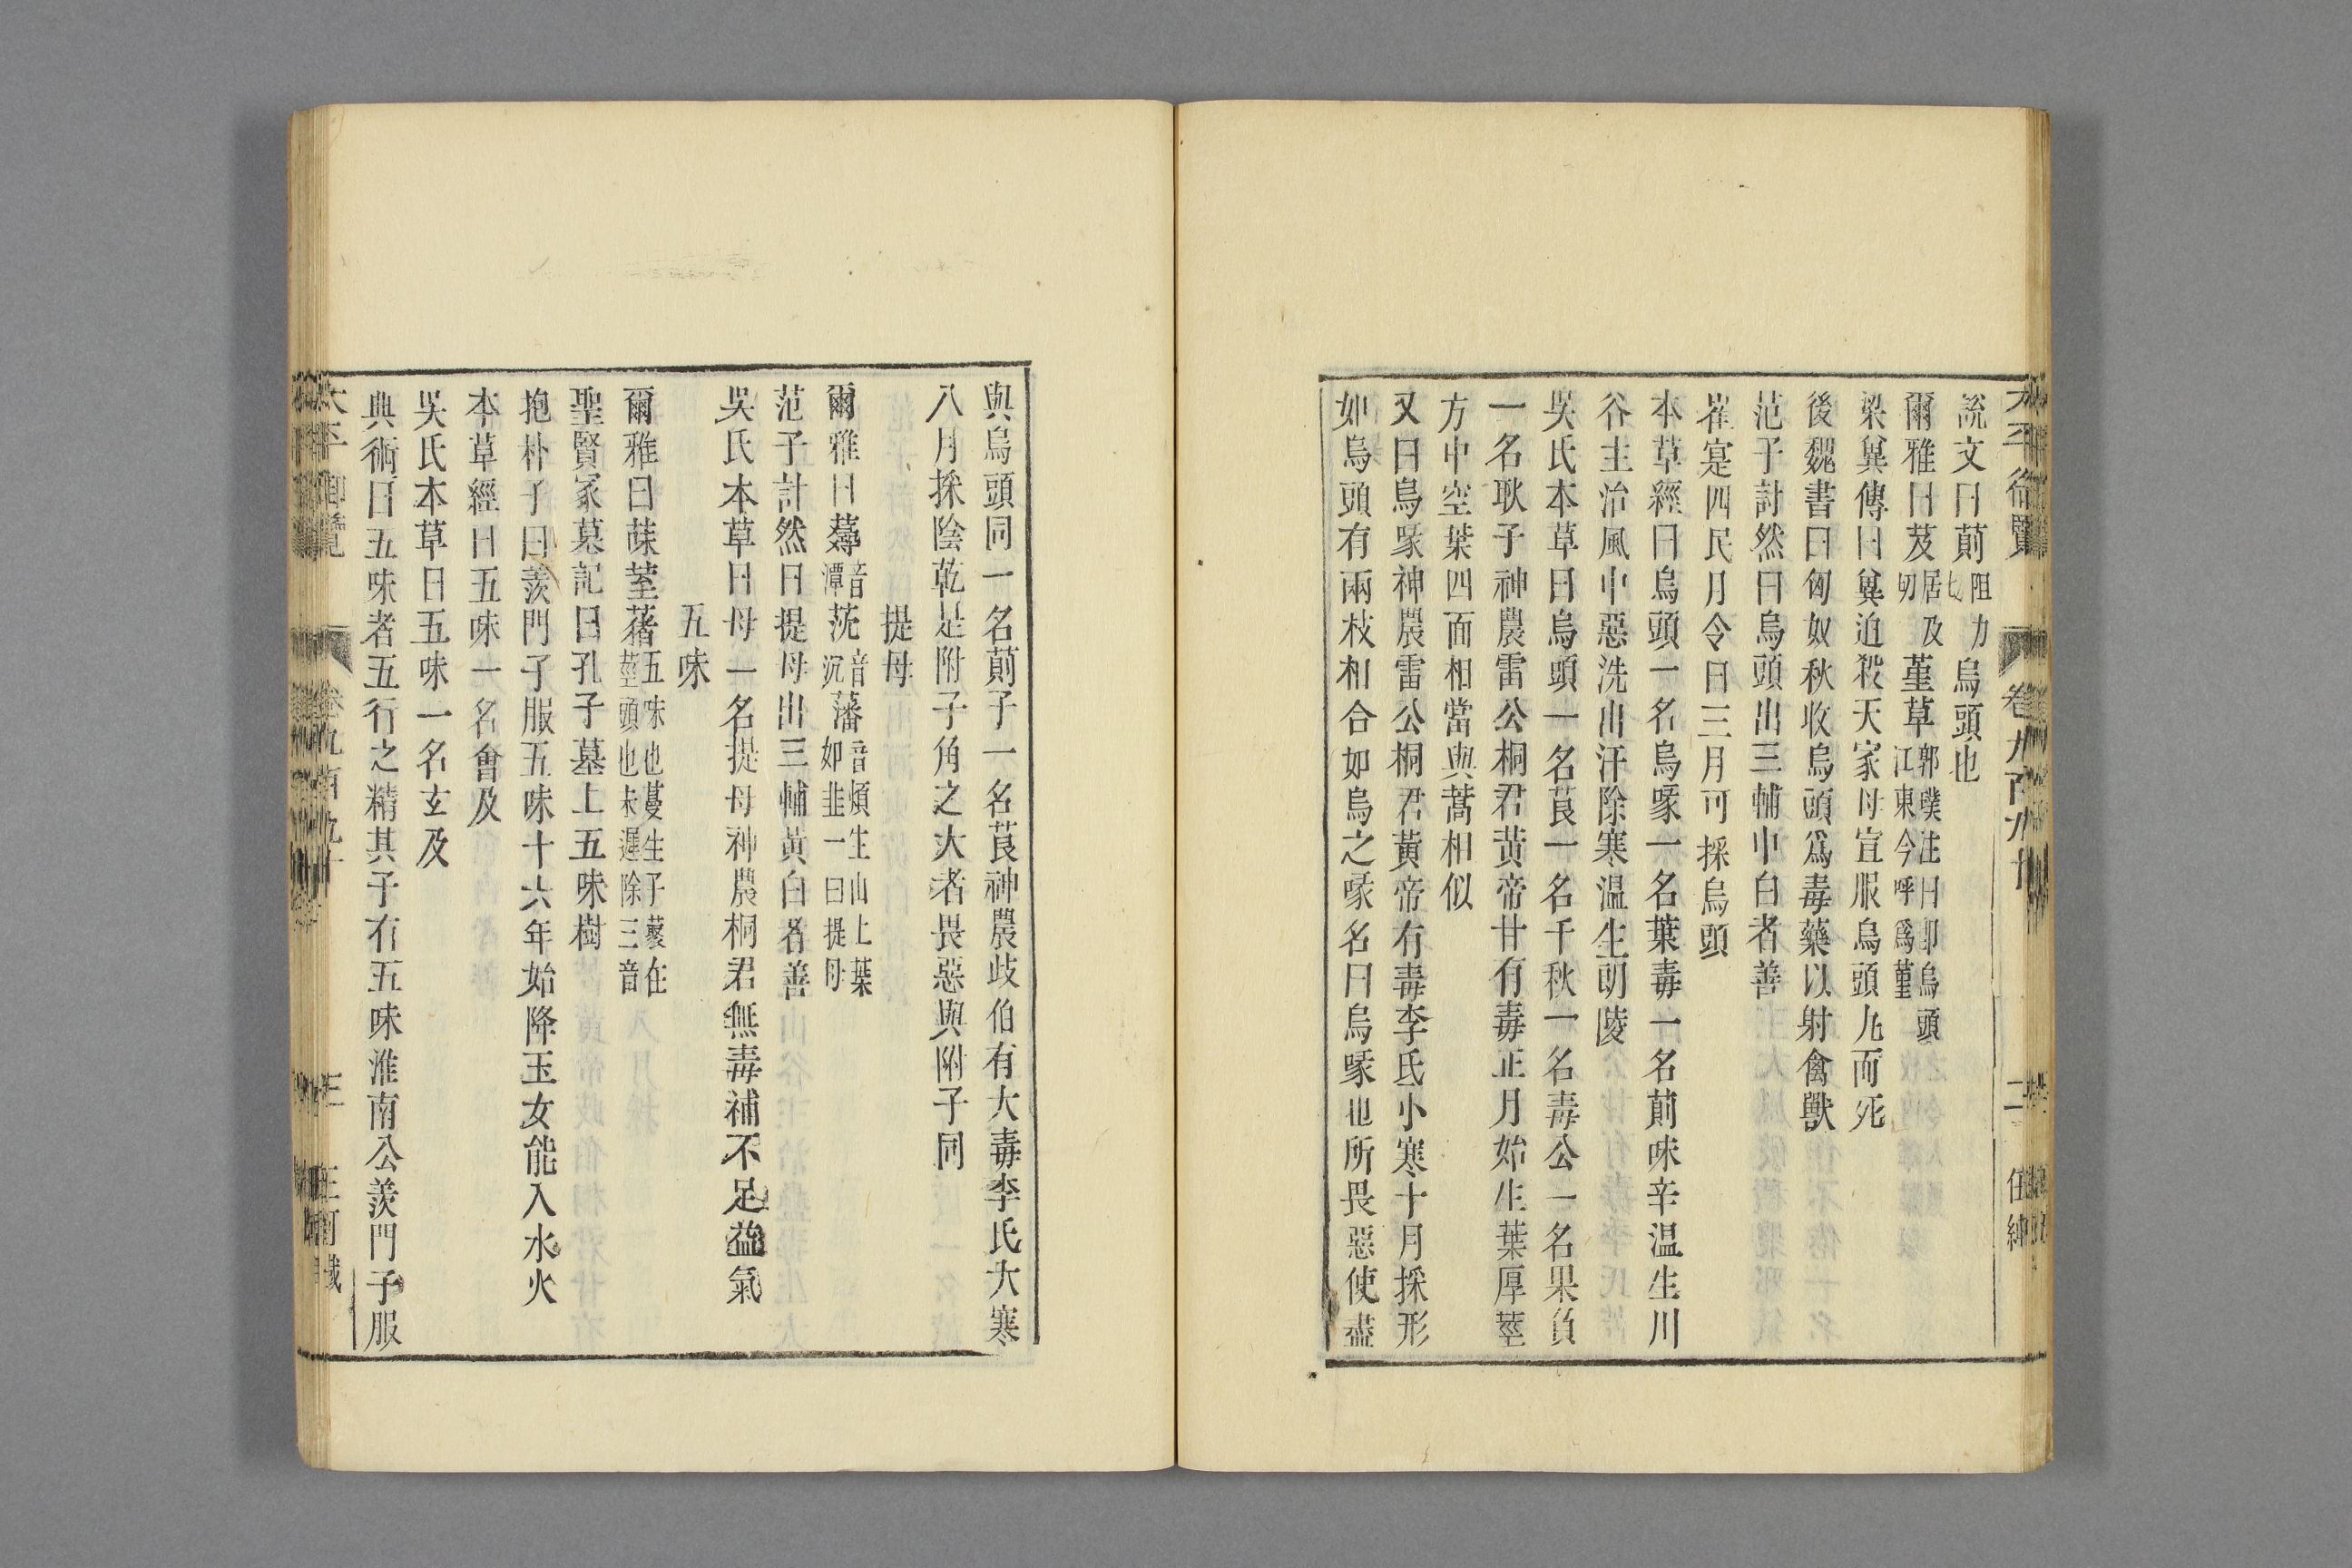 說文曰萴阻力切烏頭也
爾雅曰芨居及切菫草郭璞注曰即烏頭江東今呼爲菫
梁冀傳曰冀迫殺天家母宣服烏頭九而死
後魏書曰匈奴秋收烏頭爲毒藥以射禽獸
范子計然曰烏頭出三輔中白者善
崔寔四民月令曰三月可採烏頭
本草經曰烏頭一名烏喙一名葉毒一名萴味辛温生川
谷主治風中惡洗出汗除寒温生朗陵
吳氏本草曰烏頭一名茛一名千秋一名毒公一名果負
一名耿子神農雷公桐君黄帝甘有毒正月始生葉厚莖
方中空葉四面相當與蒿相似
又曰烏喙神農雷公桐君黃帝有毒李氏小寒十月採形
如烏頭有兩枝相合如烏之喙名曰烏喙也所畏惡使盡
與烏頭同一名萴子一名茛神農歧伯有大毒李氏大寒
八月採陰乾是附子角之大者畏惡與附子同
提母
爾雅曰蕁音潭莐音沉藩音煩生山上葉如韭一曰提母
范子計然曰提母出三輔黃白者善
吳氏本草曰母一名提母神農桐君無毒補不足益氣
五味
爾雅曰菋荎藸五味也蔓生子叢在莖頭也未遲除三音
聖賢冢墓記曰孔子墓上五味樹
抱朴子曰羨門子服五味十六年始降玉女能入水火
本草經曰五味一名會及
吳氏本草曰五味一名玄及
典術曰五味者五行之精其子有五味淮南公羨門子服